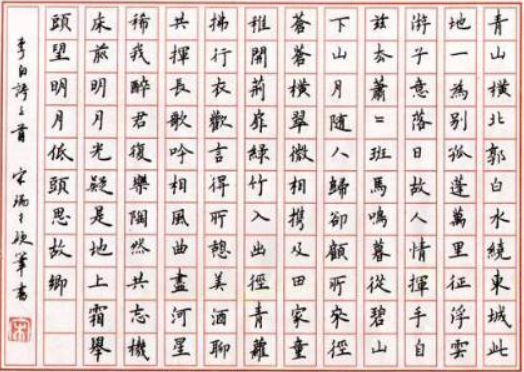 青山橫北郭白水繞東城此
地一為別孤蓬萬里征浮雲
游子意落日故人情揮手自
茲去蕭=班馬鳴暮從碧山
下山月隨人歸卻顧所來徑
蒼蒼橫翠微相攜及田家童
稚開荊扉綠竹入出徑青蘿
拂行衣歡言得所憩美酒聊
共揮長歌吟相風曲盡河星
稀我醉君復樂陶然共忘機
床前明月光疑是地上霜舉
頭望明月低頭思故鄉
李白詩三首 宋 硬筆書
宋